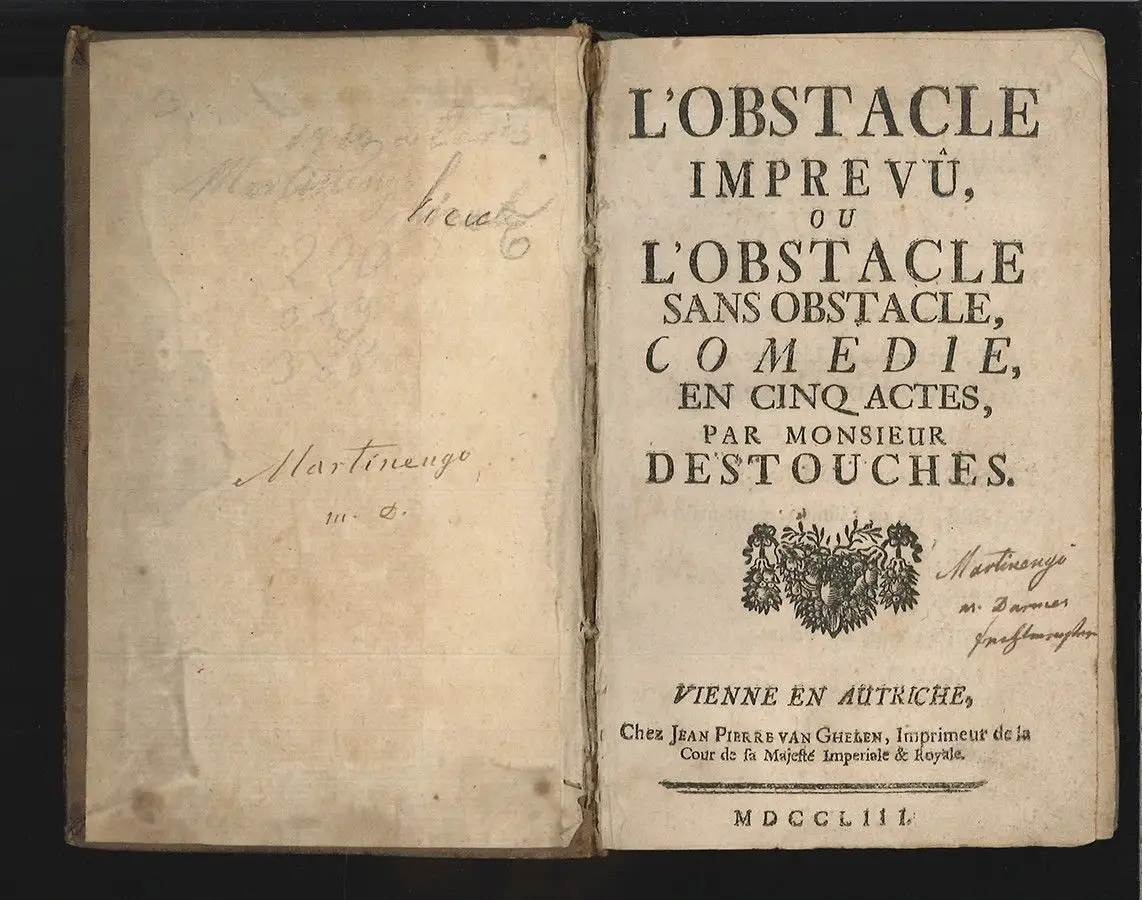 Martinengo
220
Martinengo
m. D.
L'OBSTACLE
IMPREVÛ,
OU
L'OBSTACLE
SANS OBSTACLE,
COMEDIE,
EN CINQ ACTES,
PAR MONSIEUR
DESTOUCHES.
Martinengo
VIENNE EN AUTRICHE,
Chez JEAN PIERRE VAN GHELEN, Imprimeur de la
Cour de ſa Majeſté Imperiale & Royale.
MDCCLIII.